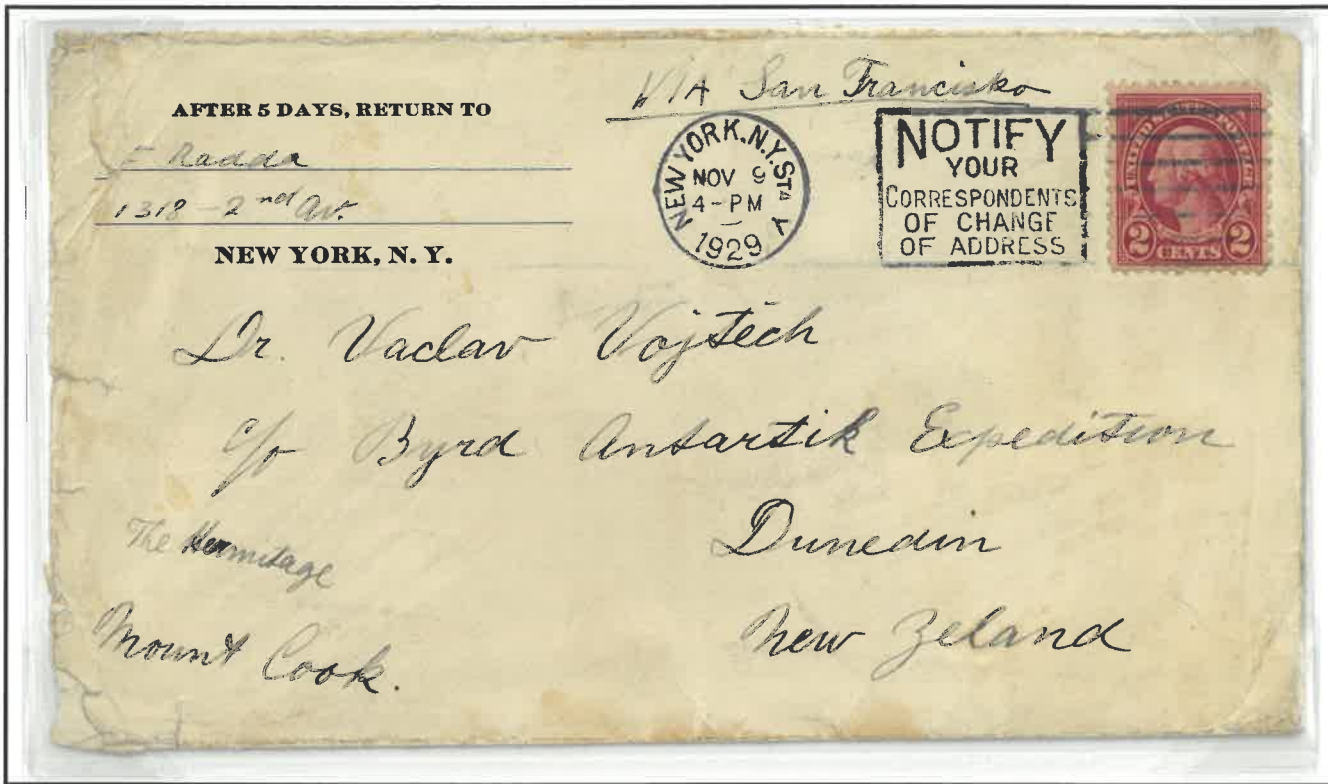 AFTER 5 DAYS, RETURN TO
F Radda
1318 - 2nd Av.
NEW YORK, N. Y.
VIA San Francisko
NEW YORK, N.Y. STA Y
NOV 9
4-PM
1929
NOTIFY
YOUR
CORRESPONDENTS
OF CHANGE
OF ADDRESS
UNITED STATES POSTAGE
2 CENTS 2
Dr. Vaclav Vojtěch
c/o Byrd Antartik Expedition
Dunedin
New Zeland
The Hermitage
Mount Cook.